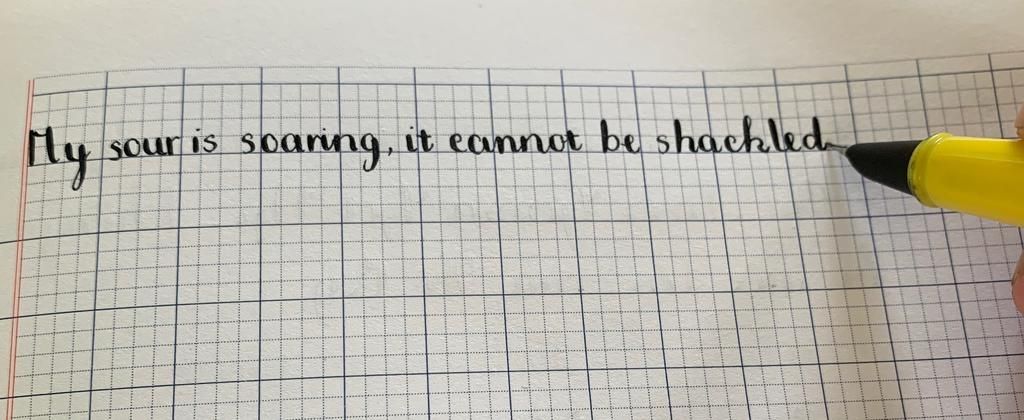 My sour is soaring, it cannot be shackled